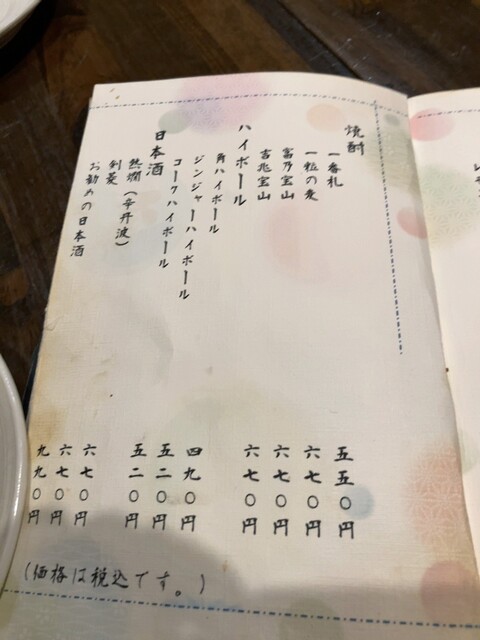 焼酎
一番札 五五〇円
一粒の麦 六七〇円
富乃宝山 六七〇円
吉兆宝山 六七〇円
ハイボール
角ハイボール 四九〇円
ジンジャーハイボール 五二〇円
コークハイボール 五二〇円
日本酒
熱燗(辛丹波) 六七〇円
剣菱 六七〇円
お勧めの日本酒 九九〇円
(価格は税込です。)